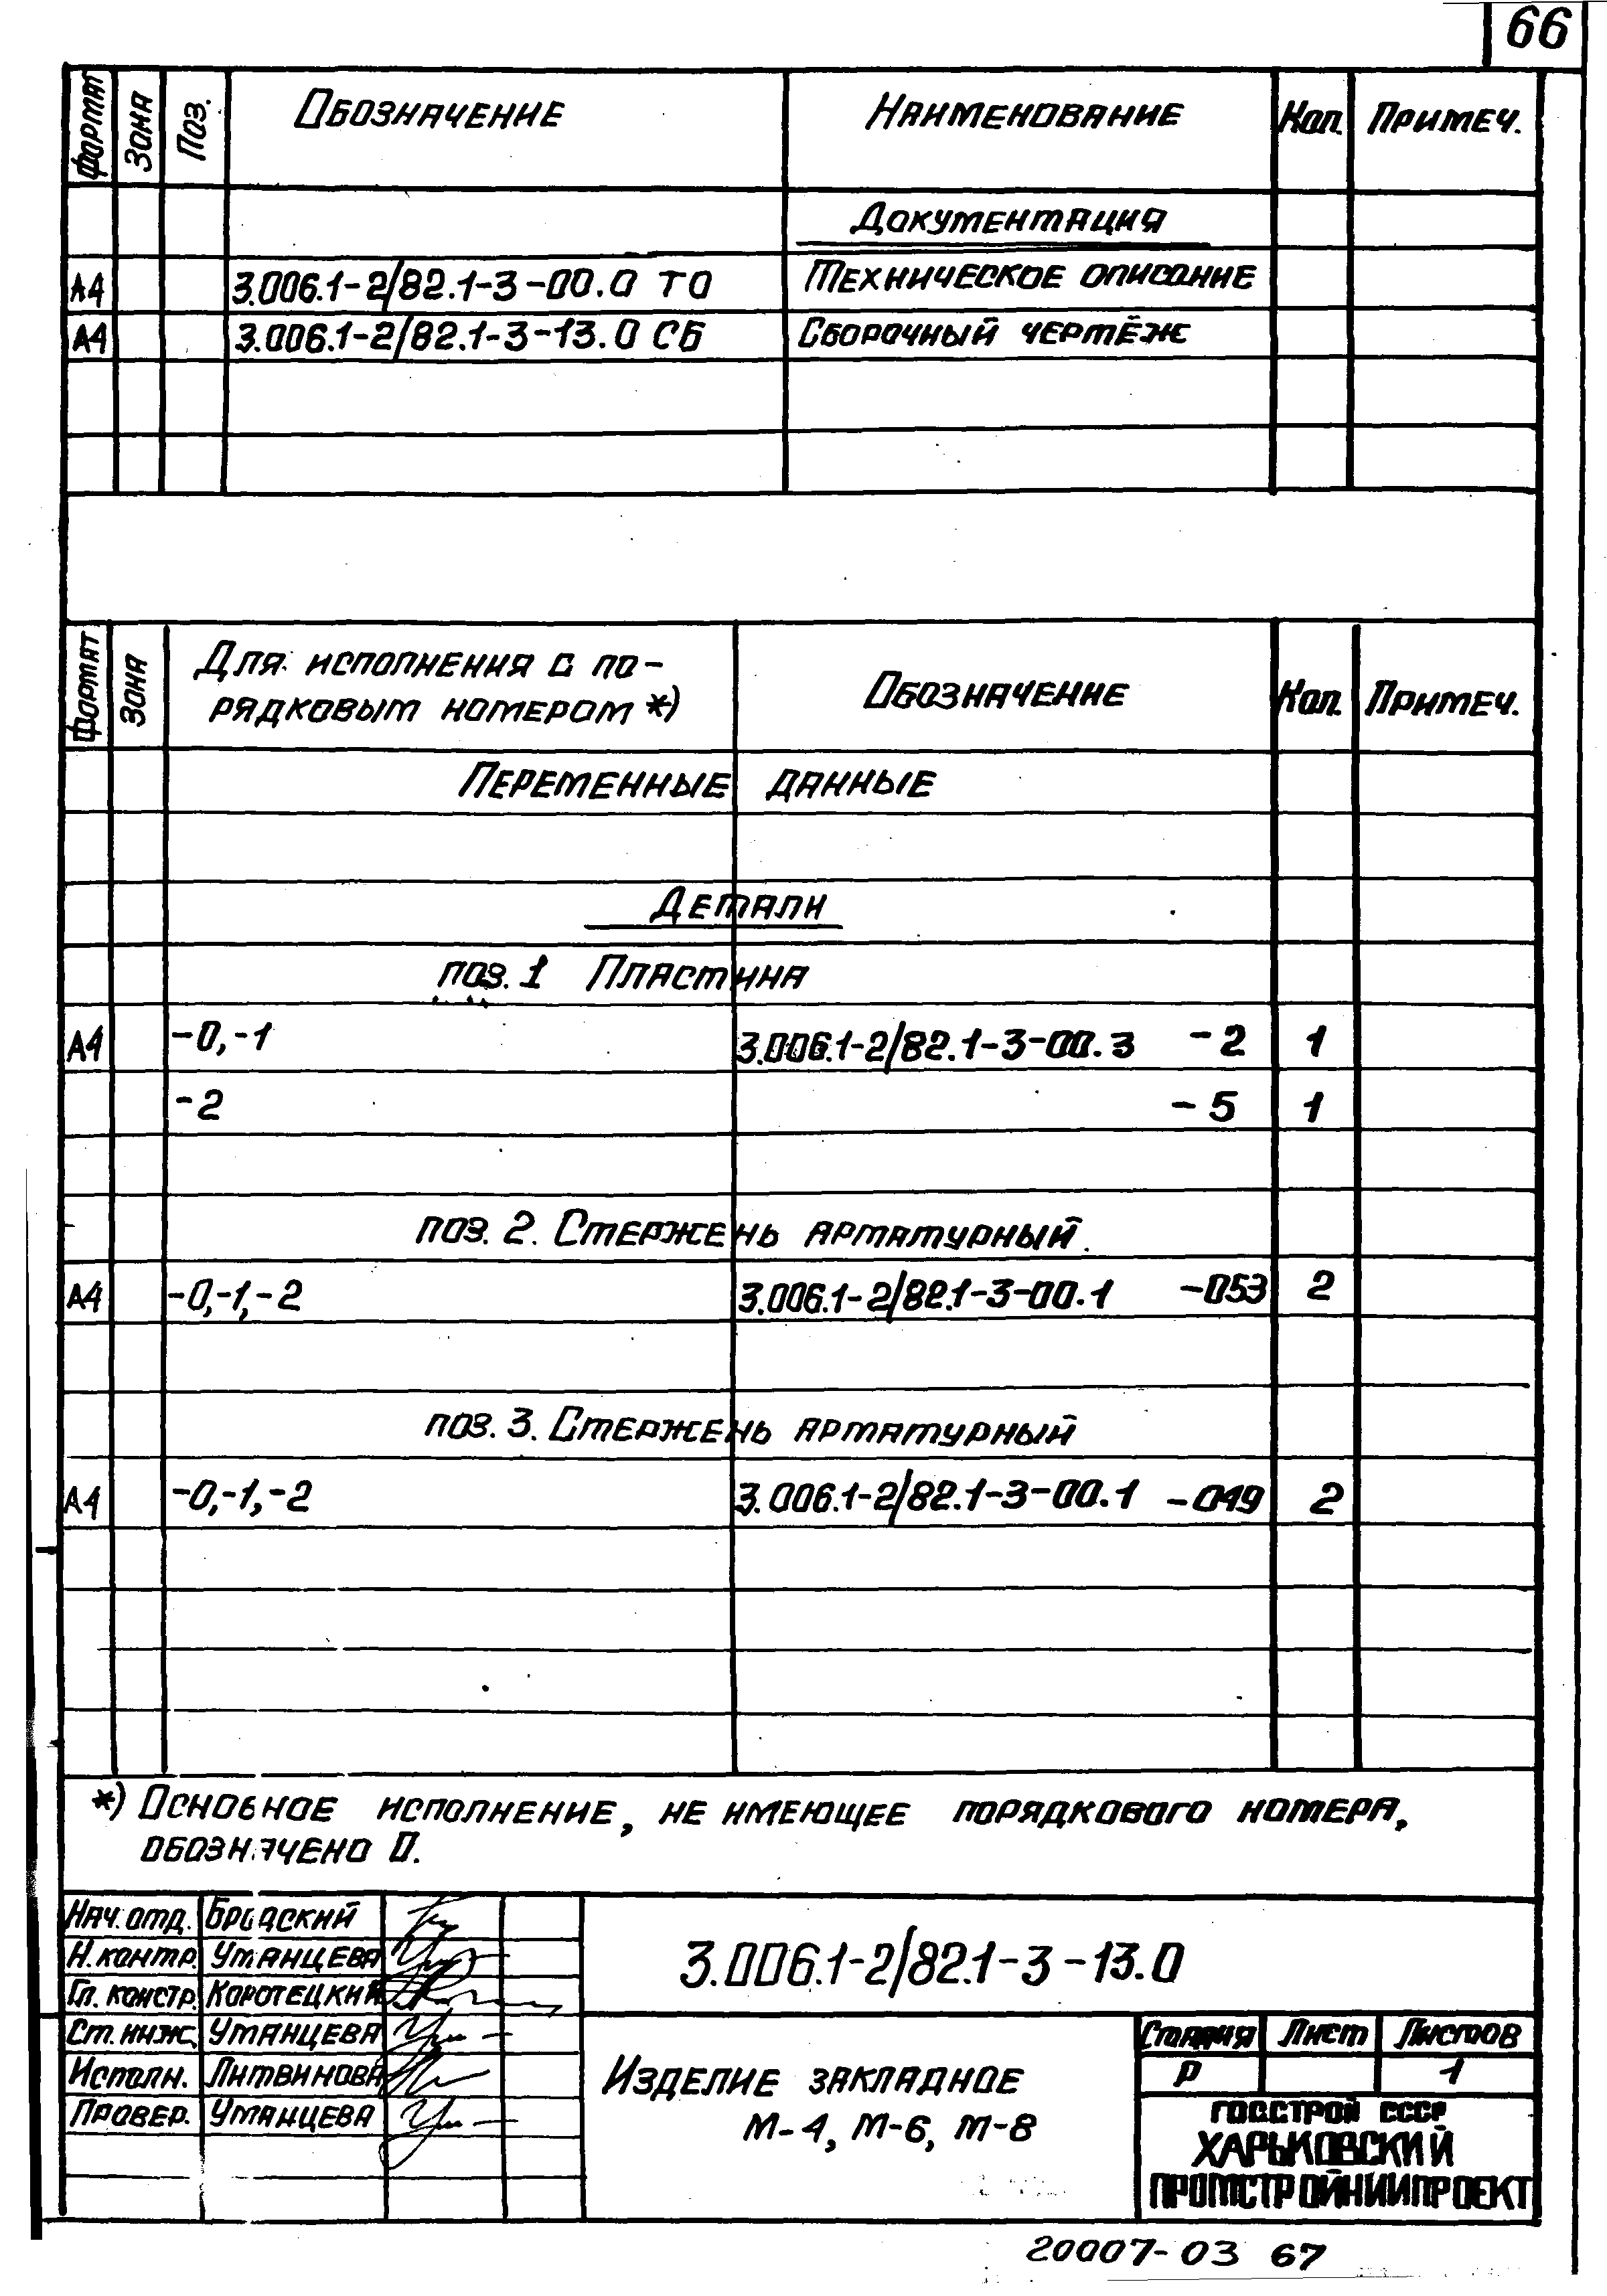 66
Формат Зона Поз. Обозначение Наименование Кол. Примеч.
Документация
А4 3.006.1-2/82.1-3-00.0 ТО Техническое описание
А4 3.006.1-2/82.1-3-13.0 СБ Сборочный чертёж
Формат Зона Для исполнения с по-
рядковым номером *) Обозначение Кол. Примеч.
Переменные данные
Детали
поз. 1 Пластина
А4 -0,-1 3.006.1-2/82.1-3-00.3 -2 1
-2 -5 1
поз. 2. Стержень арматурный.
А4 -0,-1,-2 3.006.1-2/82.1-3-00.1 -053 2
поз. 3. Стержень арматурный
А4 -0,-1,-2 3.006.1-2/82.1-3-00.1 -049 2
*) Основное исполнение, не имеющее порядкового номера,
обозначено 0.
Нач. отд. Бродский
Н. контр. Уманцева
Гл. констр. Коротецкий
Ст. инж. Уманцева
Исполн. Литвинова
Провер. Уманцева
3.006.1-2/82.1-3-13.0
Изделие закладное
М-4, М-6, М-8
Стадия Лист Листов
Р 1
ГОССТРОЙ СССР
ХАРЬКОВСКИЙ
ПРОМСТРОЙНИИПРОЕКТ
20007-03 67